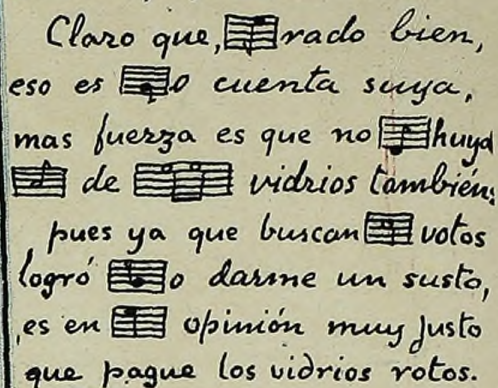 Claro que, rado bien,
eso es o cuenta suya,
mas fuerza es que no huya
de vidrios también;
pues ya que buscan votos
logró o darme un susto,
es en opinión muy justo
que pague los vidrios rotos.